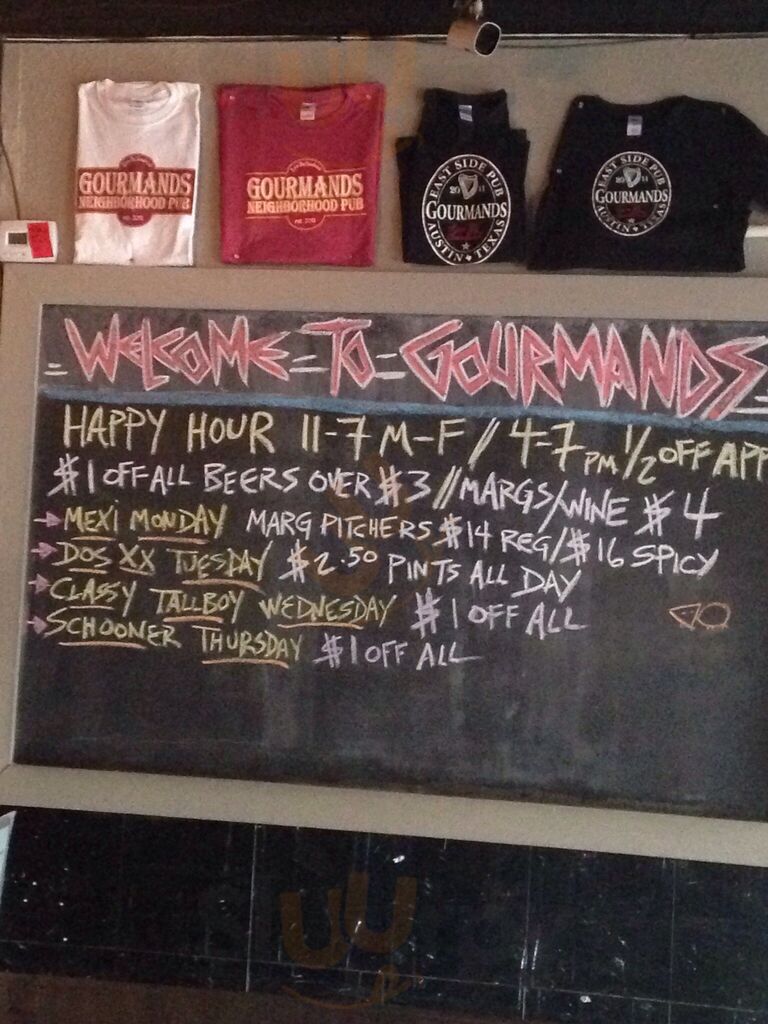 GOURMANDS
NEIGHBORHOOD PUB
GOURMANDS
NEIGHBORHOOD PUB
EAST SIDE PUB
20 11
GOURMANDS
AUSTIN TEXAS
EAST SIDE PUB
20 11
GOURMANDS
AUSTIN TEXAS
=WELCOME=TO=GOURMANDS=
HAPPY HOUR 11-7 M-F / 4-7PM 1/2 OFF APP
$1 OFF ALL BEERS OVER $3 // MARGS/WINE $4
→MEXI MONDAY MARG PITCHERS $14 REG/$16 SPICY
→DOS XX TUESDAY $2.50 PINTS ALL DAY
→CLASSY TALLBOY WEDNESDAY $1 OFF ALL
→SCHOONER THURSDAY $1 OFF ALL